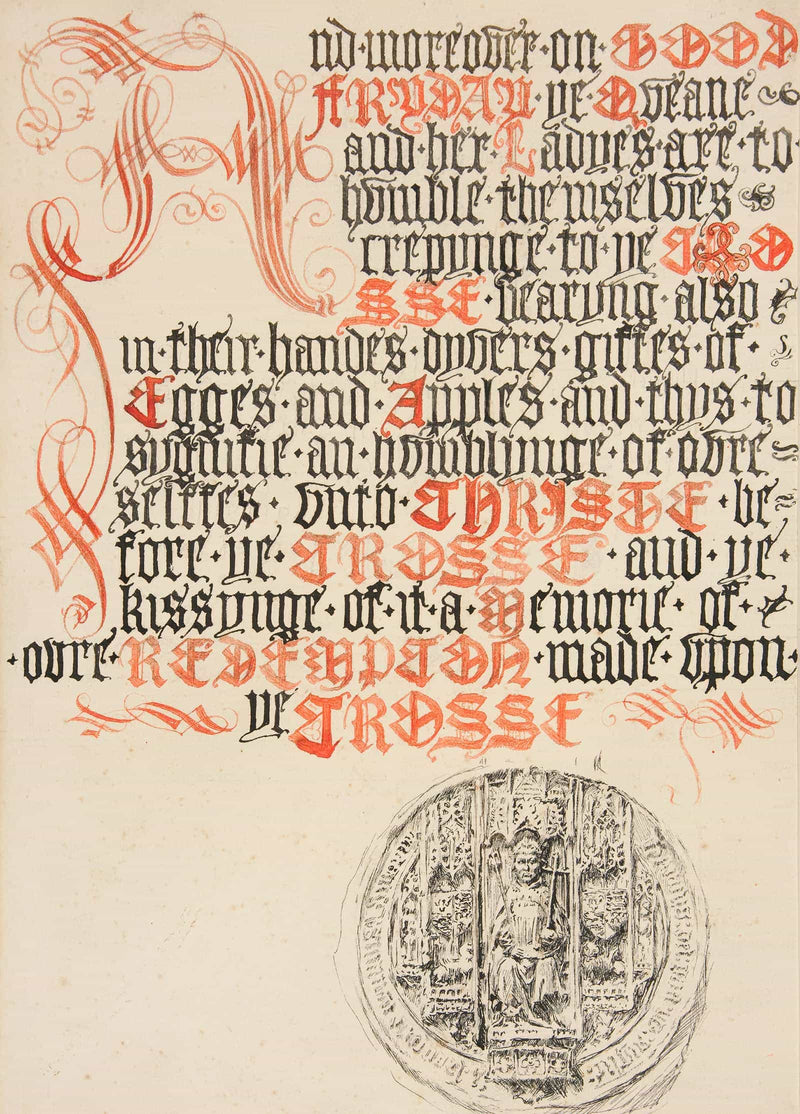 And·moreover·on·GOOD
FRYDAY·ye·Qveane
and·her·Ladyes·are·to·
hvmble·themselves
crepynge·to·ye CRO
SSE·bearyng·also
in·their·handes·dyvers·giftes·of·
Egges·and·Apples·and·thvs·to
sygnifie·an·hvmblynge·of·ovre
selffes·vnto·CHRISTE·be-
fore·ye·CROSSE·and·ye·
kissynge·of·it·a·Memorie·of·
·ovre·REDEMPCON·made·vpon·
ye CROSSE